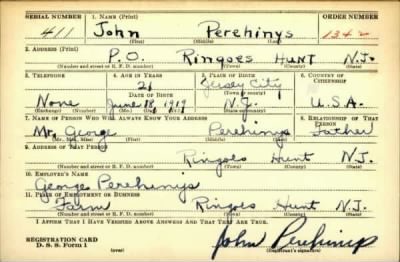 SERIAL NUMBER 1. NAME (Print) ORDER NUMBER
411 John Perehinys 1342
(First) (Middle) (Last)
2. ADDRESS (Print)
P.O. Ringoes Hunt N.J.
(Number and street or R. F. D. number) (Town) (County) (State)
3. TELEPHONE 4. AGE IN YEARS 5. PLACE OF BIRTH 6. COUNTRY OF CITIZENSHIP
21 Jersey City
DATE OF BIRTH (Town or county)
None June 18, 1919 N.J. U.S.A.
(Exchange) (Number) (Mo.) (Day) (Yr.) (State or country)
7. NAME OF PERSON WHO WILL ALWAYS KNOW YOUR ADDRESS 8. RELATIONSHIP OF THAT PERSON
Mr. George Perehinys Father
(Mr., Mrs., Miss) (First) (Middle) (Last)
9. ADDRESS OF THAT PERSON
Ringoes Hunt N.J.
(Number and street or R. F. D. number) (Town) (County) (State)
10. EMPLOYER'S NAME
George Perehinys
11. PLACE OF EMPLOYMENT OR BUSINESS
Farm Ringoes Hunt N.J.
(Number and street or R. F. D. number) (Town) (County) (State)
I AFFIRM THAT I HAVE VERIFIED ABOVE ANSWERS AND THAT THEY ARE TRUE.
REGISTRATION CARD
D. S. S. Form 1 (over) John Perehinys
(Registrant's signature)